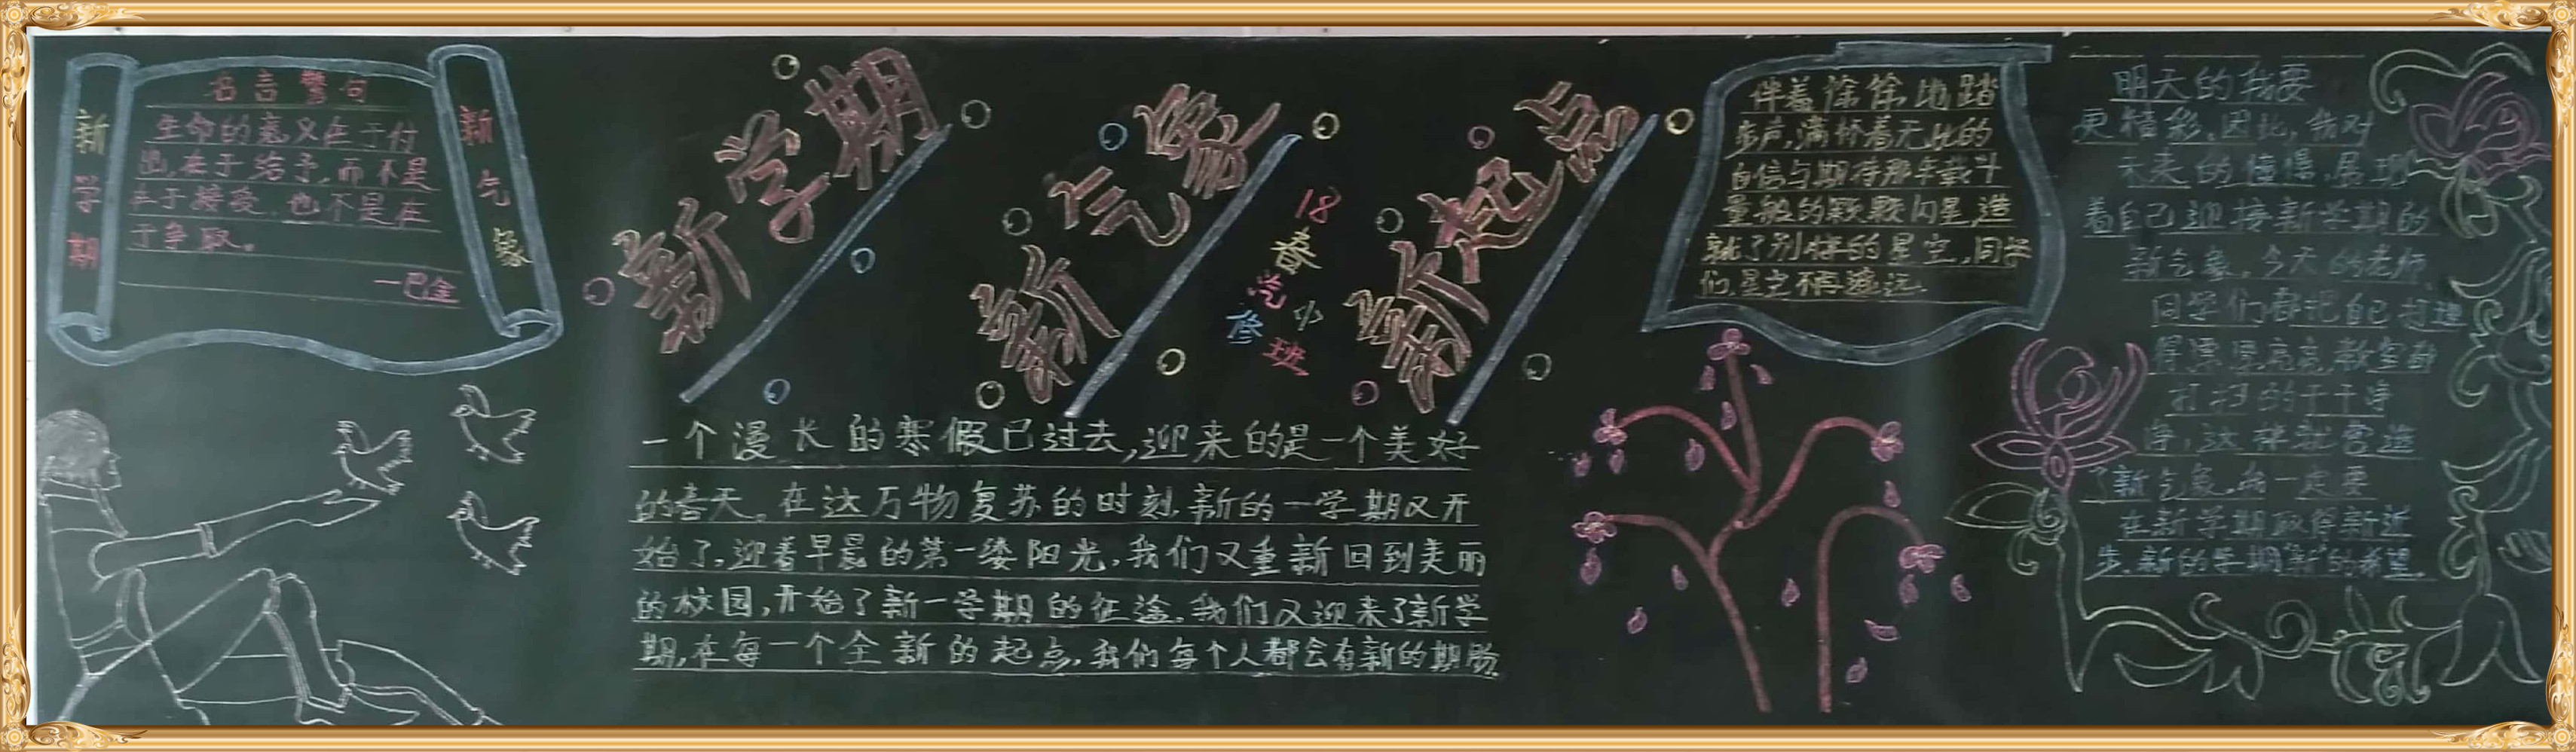 新学期
名言警句
生命的意义在于付
出,在于给予,而不是
在于接受,也不是在
于争取。
一巴金
新气象
新学期
新气象
新起点
18春汽修
小班
一个漫长的寒假已过去,迎来的是一个美好
的春天。在这万物复苏的时刻,新的一学期又开
始了,迎着早晨的第一缕阳光,我们又重新回到美丽
的校园,开始了新一学期的征途,我们又迎来了新学
期,在每一个全新的起点,我们每个人都会有新的期盼
伴着徐徐地踏
步声,满怀着无比的
自信与期待那年载斗
量般的颗颗闪星,造
就了别样的星空,同学
们,星空不再遥远.
明天的我要
更精彩,因此,我对
未来的憧憬,展现
着自己迎接新学期的
新气象,今天的老师、
同学们都把自己打理
得漂漂亮亮,教室都
打扫的干干净
净,这样就营造
了新气象,我一定要
在新学期取得新近
步,新的学期"新"的希望。